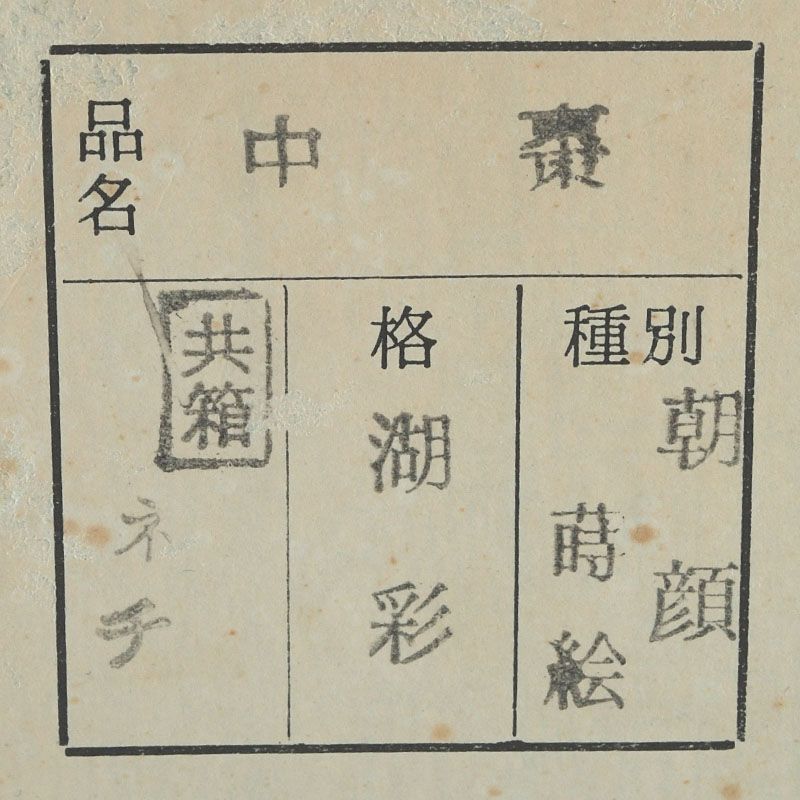 品名
中棗
種別
朝顔
蒔絵
格
湖彩
共箱
ネチ